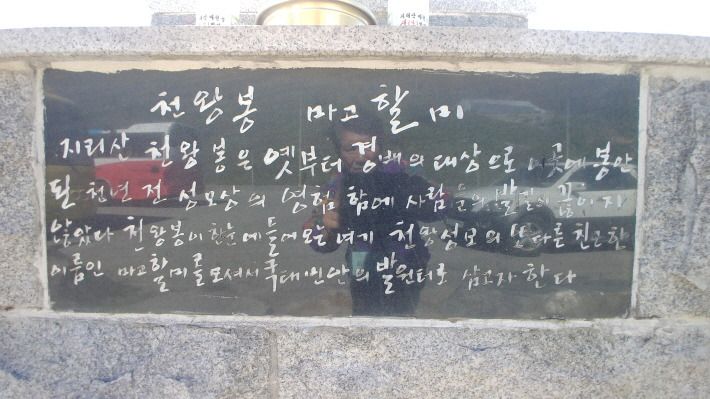 천왕봉 마고할미
지리산 천왕봉은 옛부터 경배의 대상으로 이곳에 봉안
된 천년 전 성모상의 영험 함에 사람들의 발길이 끊이지
않았다 천왕봉이 한눈에 들어오는 여기 천왕성모의 또다른 친근한
이름인 마고할미를 모셔서 국태민안의 발원터로 삼고자 한다